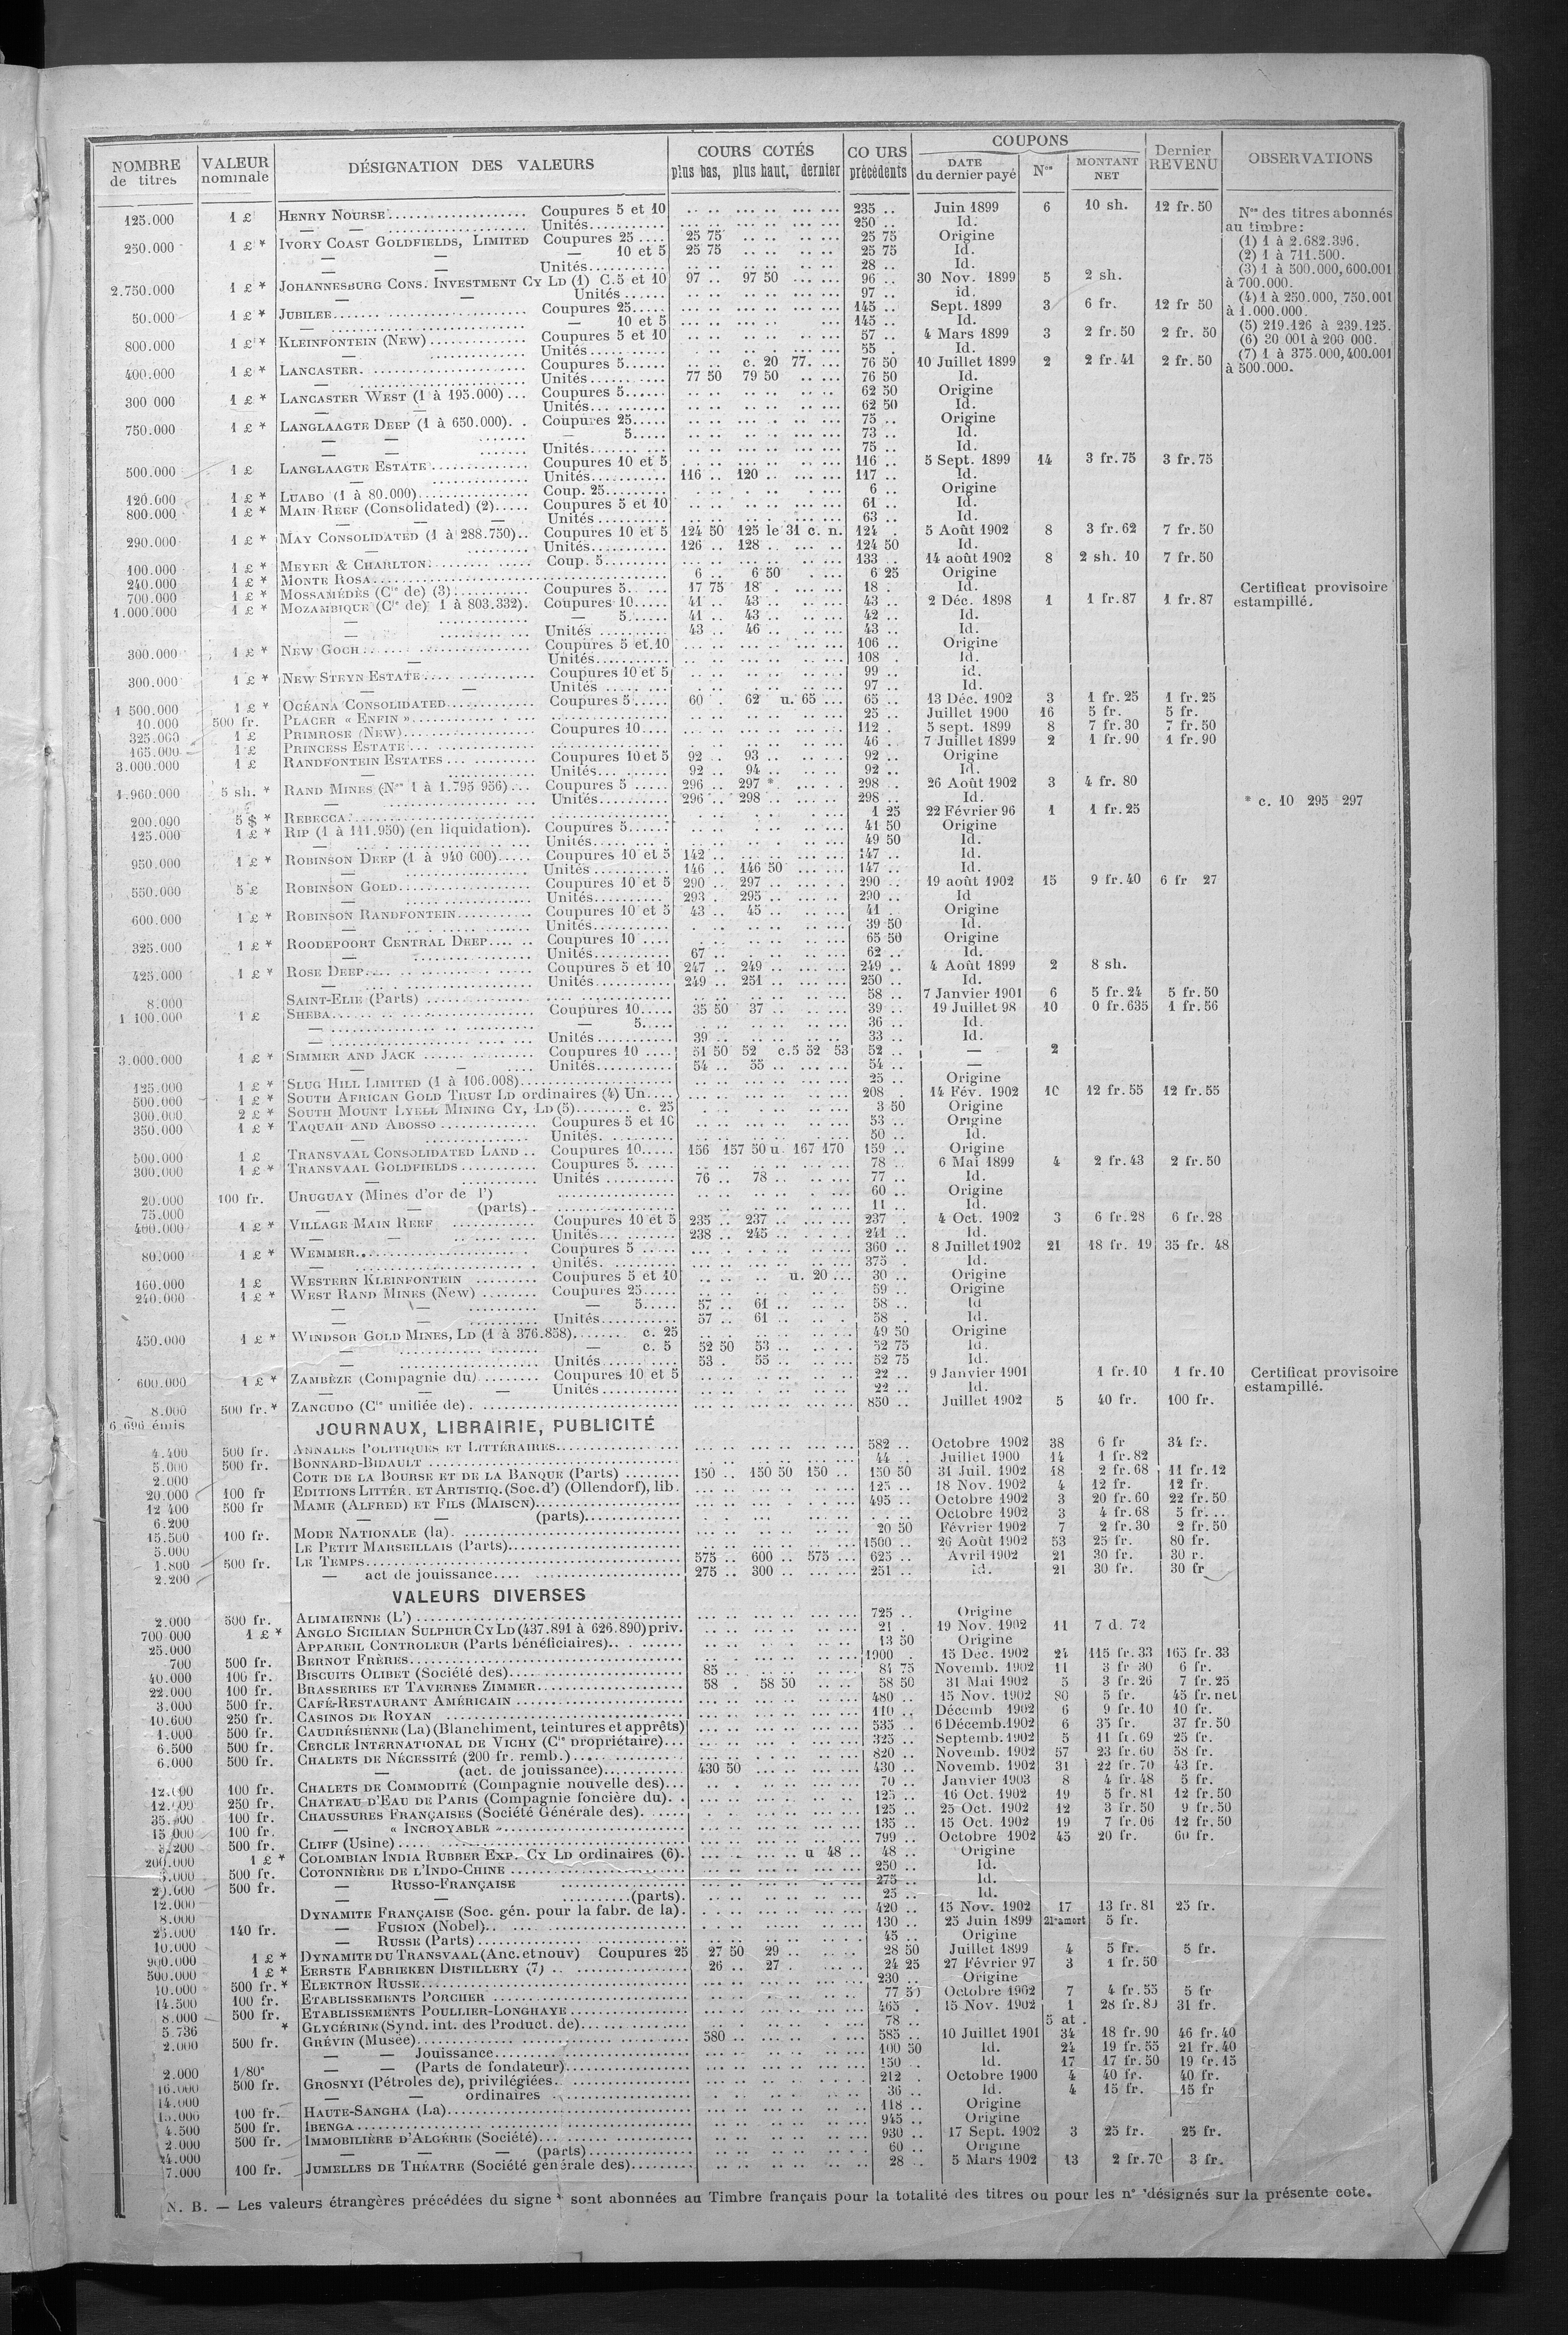 NOMBRE de titres | VALEUR nominale | DÉSIGNATION DES VALEURS | COURS COTÉS plus bas, plus haut, dernier | COURS précédents | COUPONS DATE du dernier payé | Nos | MONTANT NET | Dernier REVENU | OBSERVATIONS
125.000 1 £ HENRY NOURSE Coupures 5 et 10 235 .. Juin 1899 6 10 sh. 12 fr. 50
— — Unités 250 .. Id.
250.000 1 £ * IVORY COAST GOLDFIELDS, LIMITED Coupures 25 25 75 25 75 Origine
— — — 10 et 5 25 75 25 75 Id.
Unités 28 .. Id.
2.750.000 1 £ * JOHANNESBURG CONS. INVESTMENT CY LD (1) C. 5 et 10 97 .. 97 50 96 .. 30 Nov. 1899 5 2 sh.
— — Unités 97 .. id.
50.000 1 £ * JUBILEE Coupures 25 145 .. Sept. 1899 3 6 fr. 12 fr 50
— — 10 et 5 145 .. Id.
800.000 1 £ * KLEINFONTEIN (NEW) Coupures 5 et 10 57 .. 4 Mars 1899 3 2 fr. 50 2 fr. 50
— Unités 55 . Id.
400.000 1 £ * LANCASTER Coupures 5 c. 20 77. 76 50 10 Juillet 1899 2 2 fr. 41 2 fr. 50
— Unités 77 50 79 50 76 50 Id.
300 000 1 £ * LANCASTER WEST (1 à 195.000) Coupures 5 62 50 Origine
— — Unités 62 50 Id.
750.000 1 £ * LANGLAAGTE DEEP (1 à 650.000) Coupures 25 75 .. Origine
— — — 5 73 .. Id.
— — Unités 75 .. Id.
500.000 1 £ LANGLAAGTE ESTATE Coupures 10 et 5 116 .. 5 Sept. 1899 14 3 fr. 75 3 fr. 75
— — Unités 116 .. 120 .. 117 .. Id.
120.000 1 £ * LUABO (1 à 80.000) Coup. 25 6 .. Origine
800.000 1 £ * MAIN REEF (Consolidated) (2) Coupures 5 et 10 61 .. Id.
— — — Unités 63 .. Id.
290.000 1 £ * MAY CONSOLIDATED (1 à 288.750) Coupures 10 et 5 124 50 125 le 31 c. n. 124 . 5 Août 1902 8 3 fr. 62 7 fr. 50
— Unités 126 .. 128 .. 124 50 Id.
100.000 1 £ * MEYER & CHARLTON Coup. 5 133 .. 14 août 1902 8 2 sh. 10 7 fr. 50
240.000 1 £ * MONTE ROSA 6 .. 6 50 6 25 Origine
700.000 1 £ * MOSSAMÉDÈS (Cie de) (3) Coupures 5 17 75 18 . 18 . Id.
1.000.000 1 £ * MOZAMBIQUE (Cie de) 1 à 803.332) Coupures 10 41 .. 43 .. 43 .. 2 Déc. 1898 1 1 fr. 87 1 fr. 87
— — 5 41 .. 43 .. 42 .. Id.
— Unités 43 .. 46 .. 43 .. Id.
300.000 1 £ * NEW GOCH Coupures 5 et 10 106 .. Origine
— Unités 108 . Id.
300.000 1 £ * NEW STEYN ESTATE Coupures 10 et 5 99 .. id.
— — Unités 97 .. Id.
1 500.000 1 £ * OCÉANA CONSOLIDATED Coupures 5 60 . 62 u. 65 65 .. 13 Déc. 1902 3 1 fr. 25 1 fr. 25
10.000 500 fr. PLACER « ENFIN » 25 .. Juillet 1900 16 5 fr. 5 fr.
325.000 1 £ PRIMROSE (NEW) Coupures 10 112 . 5 sept. 1899 8 7 fr. 30 7 fr. 50
165.000 1 £ PRINCESS ESTATE 46 .. 7 Juillet 1899 2 1 fr. 90 1 fr. 90
3.000.000 1 £ RANDFONTEIN ESTATES Coupures 10 et 5 92 .. 93 .. 92 .. Origine
— Unités 92 .. 94 .. 92 .. Id.
1.960.000 5 sh. * RAND MINES (Nos 1 à 1.795 956) Coupures 5 296 .. 297 * 298 . 26 Août 1902 3 4 fr. 80
— — Unités 296 .. 298 .. 298 .. Id.
200.000 5 $ * REBECCA 1 25 22 Février 96 1 1 fr. 25
125.000 1 £ * RIP (1 à 111.950) (en liquidation). Coupures 5 41 50 Origine
— Unités 49 50 Id.
950.000 1 £ * ROBINSON DEEP (1 à 940 000) Coupures 10 et 5 142 .. 147 .. Id.
— — Unités 146 .. 146 50 147 .. Id.
550.000 5 £ ROBINSON GOLD Coupures 10 et 5 290 .. 297 .. 290 .. 19 août 1902 15 9 fr. 40 6 fr 27
— Unités 293 . 295 .. 290 .. Id
600.000 1 £ * ROBINSON RANDFONTEIN Coupures 10 et 5 43 .. 45 .. 41 . Origine
— Unités 39 50 Id.
325.000 1 £ * ROODEPOORT CENTRAL DEEP Coupures 10 65 50 Origine
— Unités 67 .. 62 .. Id.
425.000 1 £ * ROSE DEEP Coupures 5 et 10 247 .. 249 .. 249 .. 4 Août 1899 2 8 sh.
— Unités 249 .. 251 .. 250 .. Id.
8.000 SAINT-ELIE (Parts) 58 .. 7 Janvier 1901 6 5 fr. 24 5 fr. 50
1 100.000 1 £ SHEBA Coupures 10 35 50 37 .. 39 .. 19 Juillet 98 10 0 fr. 635 1 fr. 56
— — 5 36 .. Id.
— Unités 39 .. 33 .. Id.
3.000.000 1 £ * SIMMER AND JACK Coupures 10 51 50 52 c.5 52 53 52 .. — 2
— — Unités 54 .. 55 .. 54 .. —
125.000 1 £ * SLUG HILL LIMITED (1 à 106.008) 25 .. Origine
500.000 1 £ * SOUTH AFRICAN GOLD TRUST LD ordinaires (4) Un. 208 . 14 Fév. 1902 10 12 fr. 55 12 fr. 55
300.000 2 £ * SOUTH MOUNT LYELL MINING CY, LD (5) c. 25 3 50 Origine
350.000 1 £ * TAQUAH AND ABOSSO Coupures 5 et 10 53 .. Origine
— Unités 50 .. Id.
500.000 1 £ TRANSVAAL CONSOLIDATED LAND Coupures 10 156 157 50 u. 167 170 159 .. Origine
300.000 1 £ * TRANSVAAL GOLDFIELDS Coupures 5 78 .. 6 Mai 1899 4 2 fr. 43 2 fr. 50
— Unités 76 .. 78 .. 77 .. Id.
20.000 100 fr. URUGUAY (Mines d'or de l') 60 .. Origine
75.000 — — (parts) 11 .. Id.
400.000 1 £ * VILLAGE MAIN REEF Coupures 10 et 5 235 .. 237 .. 237 . 4 Oct. 1902 3 6 fr. 28 6 fr. 28
— — Unités 238 .. 245 .. 241 .. Id.
80.000 1 £ * WEMMER Coupures 5 360 .. 8 Juillet 1902 21 18 fr. 19 35 fr. 48
— Unités 375 . Id.
160.000 1 £ WESTERN KLEINFONTEIN Coupures 5 et 10 u. 20 30 .. Origine
240.000 1 £ * WEST RAND MINES (New) Coupures 25 59 .. Origine
— — — 5 57 .. 61 .. 58 .. Id
— — Unités 57 .. 61 .. 58 . Id.
450.000 1 £ * WINDSOR GOLD MINES, LD (1 à 376.858) c. 25 49 50 Origine
— — c. 5 52 50 53 .. 52 75 Id.
— Unités 53 . 55 .. 52 75 Id.
600.000 1 £ * ZAMBÈZE (Compagnie du) Coupures 10 et 5 22 .. 9 Janvier 1901 1 fr. 10 1 fr. 10
— — — Unités 22 .. Id.
8.000 500 fr. * ZANCUDO (Cie unifiée de) 850 .. Juillet 1902 5 40 fr. 100 fr.
6 696 émis
JOURNAUX, LIBRAIRIE, PUBLICITÉ
4.400 500 fr. ANNALES POLITIQUES ET LITTÉRAIRES 582 .. Octobre 1902 38 6 fr 34 fr.
5.000 500 fr. BONNARD-BIDAULT 44 .. Juillet 1900 14 1 fr. 82
2.000 COTE DE LA BOURSE ET DE LA BANQUE (Parts) 150 .. 150 50 150 .. 150 50 31 Juil. 1902 18 2 fr. 68 11 fr. 12
20.000 100 fr EDITIONS LITTÉR. ET ARTISTIQ. (Soc. d') (Ollendorf), lib. 125 .. 18 Nov. 1902 4 12 fr. 12 fr.
12 400 500 fr MAME (ALFRED) ET FILS (MAISON) 495 .. Octobre 1902 3 20 fr. 60 22 fr. 50
6.200 — — (parts) Octobre 1902 3 4 fr. 68 5 fr.
15.500 100 fr. MODE NATIONALE (la) 20 50 Février 1902 7 2 fr. 30 2 fr. 50
5.000 LE PETIT MARSEILLAIS (Parts) 1500 .. 26 Août 1902 53 25 fr. 80 fr.
1.800 500 fr. LE TEMPS 575 .. 600 .. 575 .. 625 .. Avril 1902 21 30 fr. 30 r.
2.200 — act de jouissance 275 .. 300 .. 251 .. id. 21 30 fr. 30 fr
VALEURS DIVERSES
2.000 500 fr. ALIMAIENNE (L') 725 .. Origine
700 000 1 £ * ANGLO SICILIAN SULPHUR CY LD (437.891 à 626.890) priv. 21 . 19 Nov. 1902 11 7 d. 72
25.000 APPAREIL CONTROLEUR (Parts bénéficiaires) 13 50 Origine
700 500 fr. BERNOT FRÈRES 1900 . 15 Déc. 1902 24 115 fr. 33 165 fr. 33
40.000 100 fr. BISCUITS OLIBET (Société des) 85 .. 84 75 Novemb. 1902 11 3 fr 30 6 fr.
22.000 100 fr. BRASSERIES ET TAVERNES ZIMMER 58 . 58 50 58 50 31 Mai 1902 5 3 fr. 26 7 fr. 25
3.000 500 fr. CAFÉ-RESTAURANT AMÉRICAIN 480 .. 15 Nov. 1902 80 5 fr. 45 fr. net
10.600 250 fr. CASINOS DE ROYAN 110 .. Décemb 1902 6 9 fr. 10 10 fr.
1.000 500 fr. CAUDRÉSIENNE (La) (Blanchiment, teintures et apprêts) 535 .. 6 Décemb. 1902 6 35 fr. 37 fr. 50
6.500 500 fr. CERCLE INTERNATIONAL DE VICHY (Cie propriétaire) 325 .. Septemb. 1902 5 11 fr. 69 25 fr.
6.000 500 fr. CHALETS DE NÉCESSITÉ (200 fr. remb.) 820 .. Novemb. 1902 57 23 fr. 60 58 fr.
— (act. de jouissance) 430 50 430 .. Novemb. 1902 31 22 fr. 70 43 fr.
12.000 100 fr. CHALETS DE COMMODITÉ (Compagnie nouvelle des) 70 .. Janvier 1903 8 4 fr. 48 5 fr.
12.000 250 fr. CHATEAU D'EAU DE PARIS (Compagnie foncière du) 125 .. 16 Oct. 1902 19 5 fr. 81 12 fr. 50
35.000 100 fr. CHAUSSURES FRANÇAISES (Société Générale des) 125 .. 25 Oct. 1902 12 3 fr. 50 9 fr. 50
15 000 100 fr. — « INCROYABLE » 135 .. 15 Oct. 1902 19 7 fr. 06 12 fr. 50
3.200 500 fr. CLIFF (Usine) 799 .. Octobre 1902 45 20 fr. 60 fr.
200.000 1 £ * COLOMBIAN INDIA RUBBER EXP. CY LD ordinaires (6) u 48 .. 48 .. Origine
500 fr. COTONNIÈRE DE L'INDO-CHINE 250 .. Id.
500 fr. — RUSSO-FRANÇAISE 275 .. Id.
12.000 — — (parts) 25 .. Id.
8.000 DYNAMITE FRANÇAISE (Soc. gén. pour la fabr. de la) 420 .. 15 Nov. 1902 17 13 fr. 81 25 fr.
25.000 140 fr. — FUSION (Nobel) 130 .. 25 Juin 1899 5 fr.
10.000 — RUSSE (Parts) 45 .. Origine
900.000 1 £ * DYNAMITE DU TRANSVAAL (Anc. et nouv) Coupures 25 27 50 29 .. 28 50 Juillet 1899 4 5 fr. 5 fr.
500.000 1 £ * EERSTE FABRIEKEN DISTILLERY (7) 26 .. 27 . 24 25 27 Février 97 3 1 fr. 50
10.000 500 fr. * ELEKTRON RUSSE 230 .. Origine
14.500 100 fr. ETABLISSEMENTS PORCHER 77 50 Octobre 1902 7 4 fr. 55 5 fr
8.000 500 fr. ETABLISSEMENTS POULLIER-LONGHAYE 465 . 15 Nov. 1902 1 28 fr. 80 31 fr.
5 736 * GLYCÉRINE (Synd. int. des Product. de) 78 .. 5 at .
2.000 500 fr. GRÉVIN (Musée) 580 .. 585 .. 10 Juillet 1901 34 18 fr. 90 46 fr. 40
— — Jouissance 100 50 Id. 24 19 fr. 55 21 fr. 40
2.000 1/80e — — (Parts de fondateur) 150 . Id. 17 17 fr. 50 19 fr. 15
16.000 500 fr. GROSNYI (Pétroles de), privilégiées 212 . Octobre 1900 4 40 fr. 40 fr.
14.000 — — ordinaires 36 .. Id. 4 15 fr. 15 fr
15.000 100 fr. HAUTE-SANGHA (La) 118 .. Origine
4.500 500 fr. IBENGA 945 .. Origine
2.000 500 fr. IMMOBILIÈRE D'ALGÉRIE (Société) 930 .. 17 Sept. 1902 3 25 fr. 25 fr.
24.000 — — (parts) 60 .. Origine
7.000 100 fr. JUMELLES DE THÉATRE (Société générale des) 28 .. 5 Mars 1902 13 2 fr. 70 3 fr.
Nos des titres abonnés
au timbre:
(1) 1 à 2.682.396.
(2) 1 à 711.500.
(3) 1 à 500.000, 600.001
à 700.000.
(4) 1 à 250.000, 750.001
à 1.000.000.
(5) 219.126 à 239.125.
(6) 30 001 à 200 000.
(7) 1 à 375.000, 400.001
à 500.000.
Certificat provisoire
estampillé.
* c. 10 295 297
Certificat provisoire
estampillé.
N. B. — Les valeurs étrangères précédées du signe * sont abonnées au Timbre français pour la totalité des titres ou pour les nos désignés sur la présente cote.